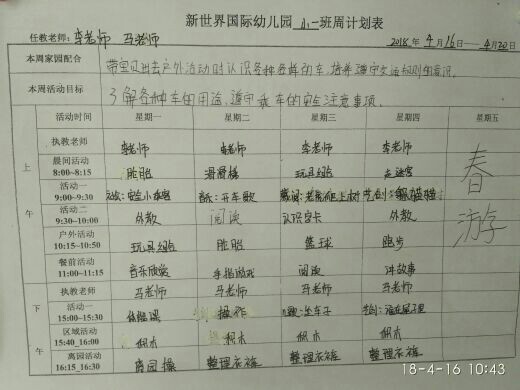 新世界国际幼儿园 小一班周计划表
任教老师：李老师 马老师 2018年4月16—4月20日
本周家园配合 带宝贝出去户外活动时认识各种各样的车，培养遵守交通规则的意识。
本周活动目标 了解各种车的用途，遵守乘车的安全注意事项。
活动时间 星期一 星期二 星期三 星期四 星期五
执教老师 李老师 李老师 李老师 李老师
上午
晨间活动 8:00~8:15 滑滑梯 玩具组
活动一 9:00~9:30 安全小乘客 音乐：开车歌
活动二 9:30~10:00 外教 阅读 认识字卡 外教
户外活动 10:15~10:50 玩具组 篮球 跑步
餐前活动 11:00~11:15 音乐欣赏 手指游戏 阅读 讲故事
春游
下午
执教老师 马老师 马老师 马老师 马老师
活动一 15:00~15:30 操作
区域活动 15:40_16:00 积木 积木 积木 积木
离园活动 16:15_16:30 离园操 整理衣裤 整理衣裤 整理衣裤
18-4-16 10:43